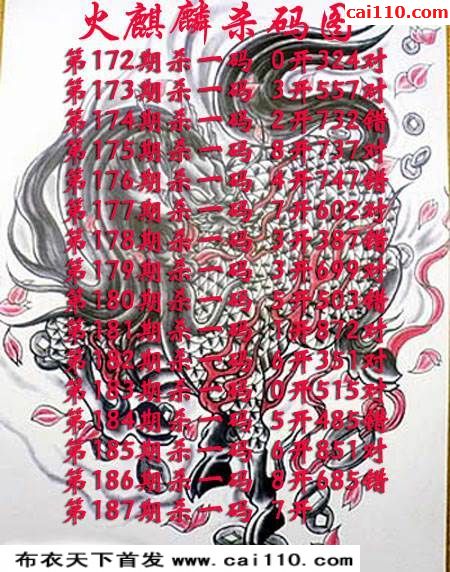 cai110.com
火麒麟杀码图
第172期杀一码 0开324对
第173期杀一码 3开557对
第174期杀一码 2开732错
第175期杀一码 8开737对
第176期杀一码 4开747错
第177期杀一码 7开602对
第178期杀一码 3开387错
第179期杀一码 3开699对
第180期杀一码 5开503错
第181期杀一码 1开872对
第182期杀一码 6开351对
第183期杀一码 0开515对
第184期杀一码 5开485错
第185期杀一码 6开851对
第186期杀一码 8开685错
第187期杀一码 7开
布衣天下首发 www.cai110.com